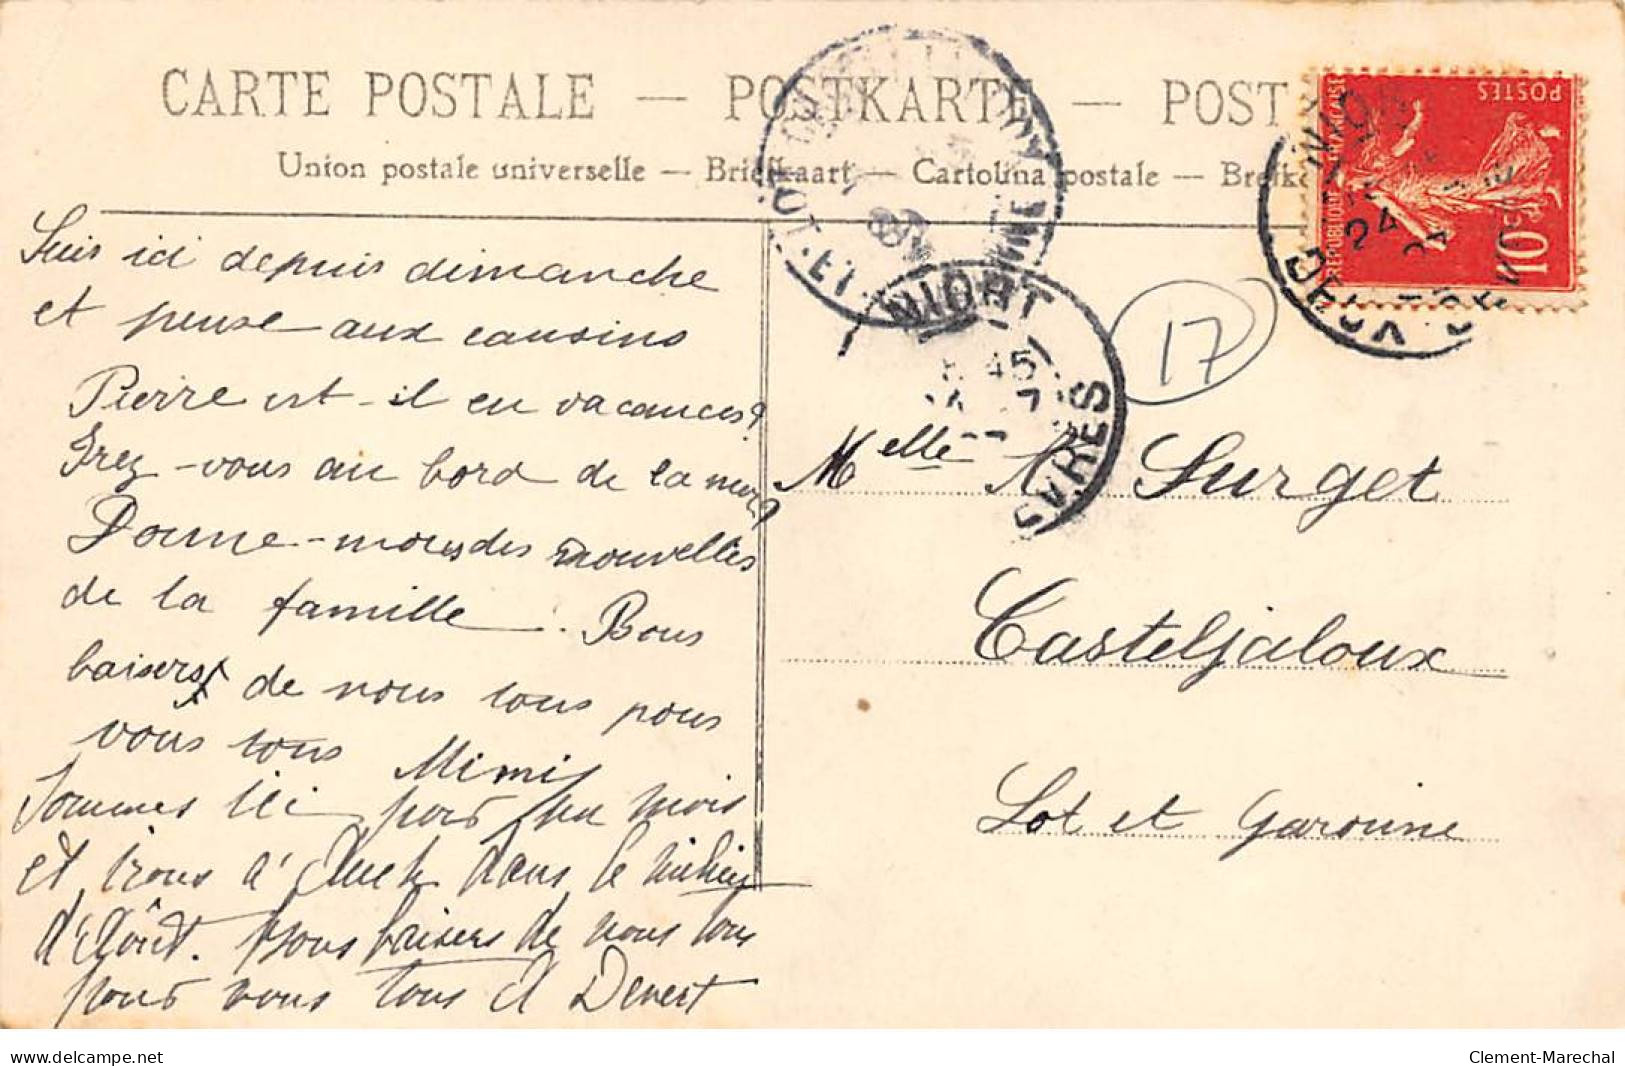 CARTE POSTALE — POSTKARTE — POST
Union postale universelle — Briefkaart — Cartolina postale — Brefk
RÉPUBLIQUE FRANÇAISE
POSTES
10c
NIORT
DEUX SEVRES
24
LOT-ET-GARONNE
NIORT
8 45
SÈVRES
17
Suis ici depuis dimanche
et pense aux cousins
Pierre est-il en vacances?
Irez-vous au bord de la mer?
Donne-nous des nouvelles
de la famille. Bons
baisers de nous tous pour
vous tous Mimi
Sommes ici pour un mois
et irons à Auch dans le milieu
d'Août. Bons baisers de nous tous
pour vous tous
Melle Surget
Casteljaloux
Lot et Garonne
www.delcampe.net
Clement-Marechal